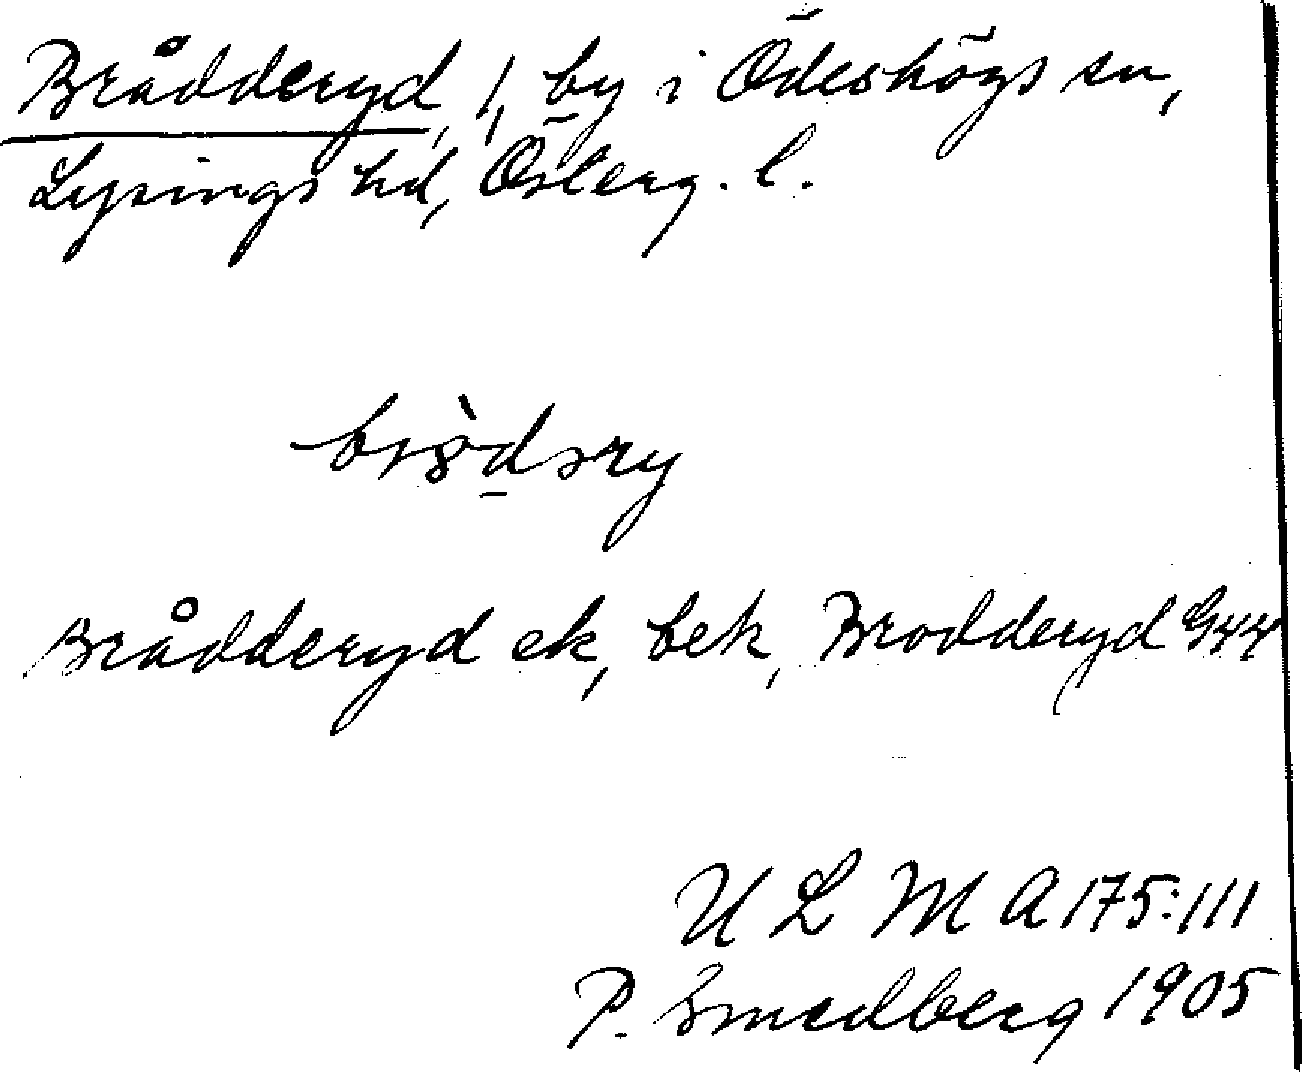 Brådderyd, 1, by i Ödeshögs sn,
Lysings hd, Österg. l.
Brådderyd ek, bek, Brodderyd G44
U L M A 175:111
P. Smedberg 1905